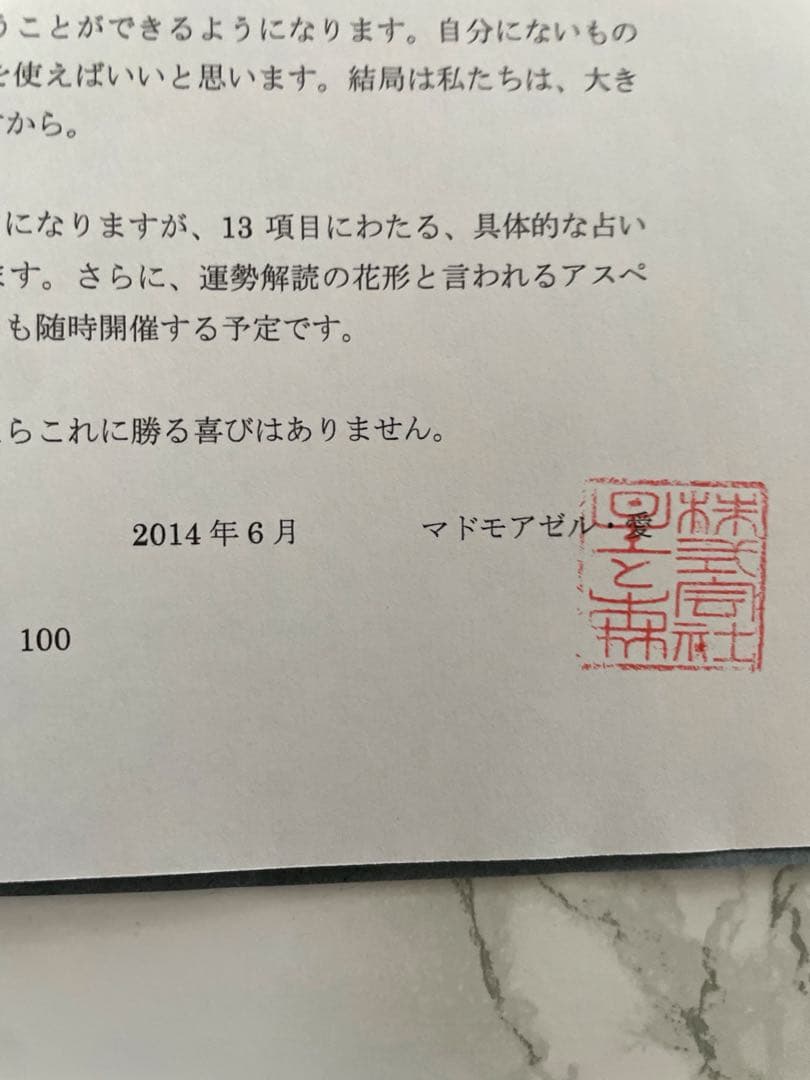 うことができるようになります。自分にないもの
を使えばいいと思います。結局は私たちは、大き
すから。
になりますが、13 項目にわたる、具体的な占い
ます。さらに、運勢解読の花形と言われるアスペ
も随時開催する予定です。
らこれに勝る喜びはありません。
2014 年 6 月 マドモアゼル・愛
株式会社
星と森
100